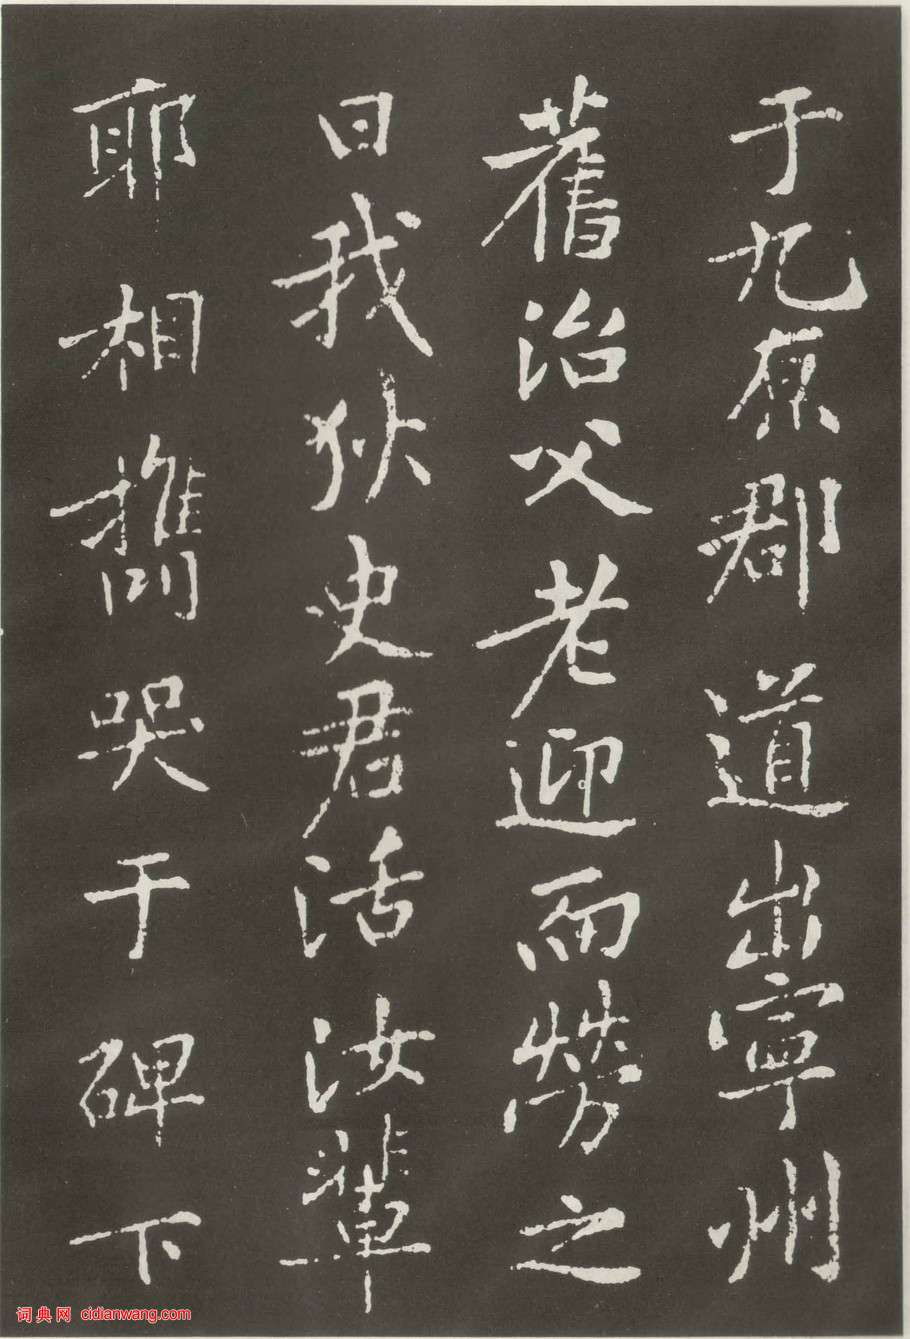 于九原郡道出寧州
舊治父老迎而勞之
曰我狄史君活汝輩
耶相攜哭于碑下
词典网 cidianwang.com